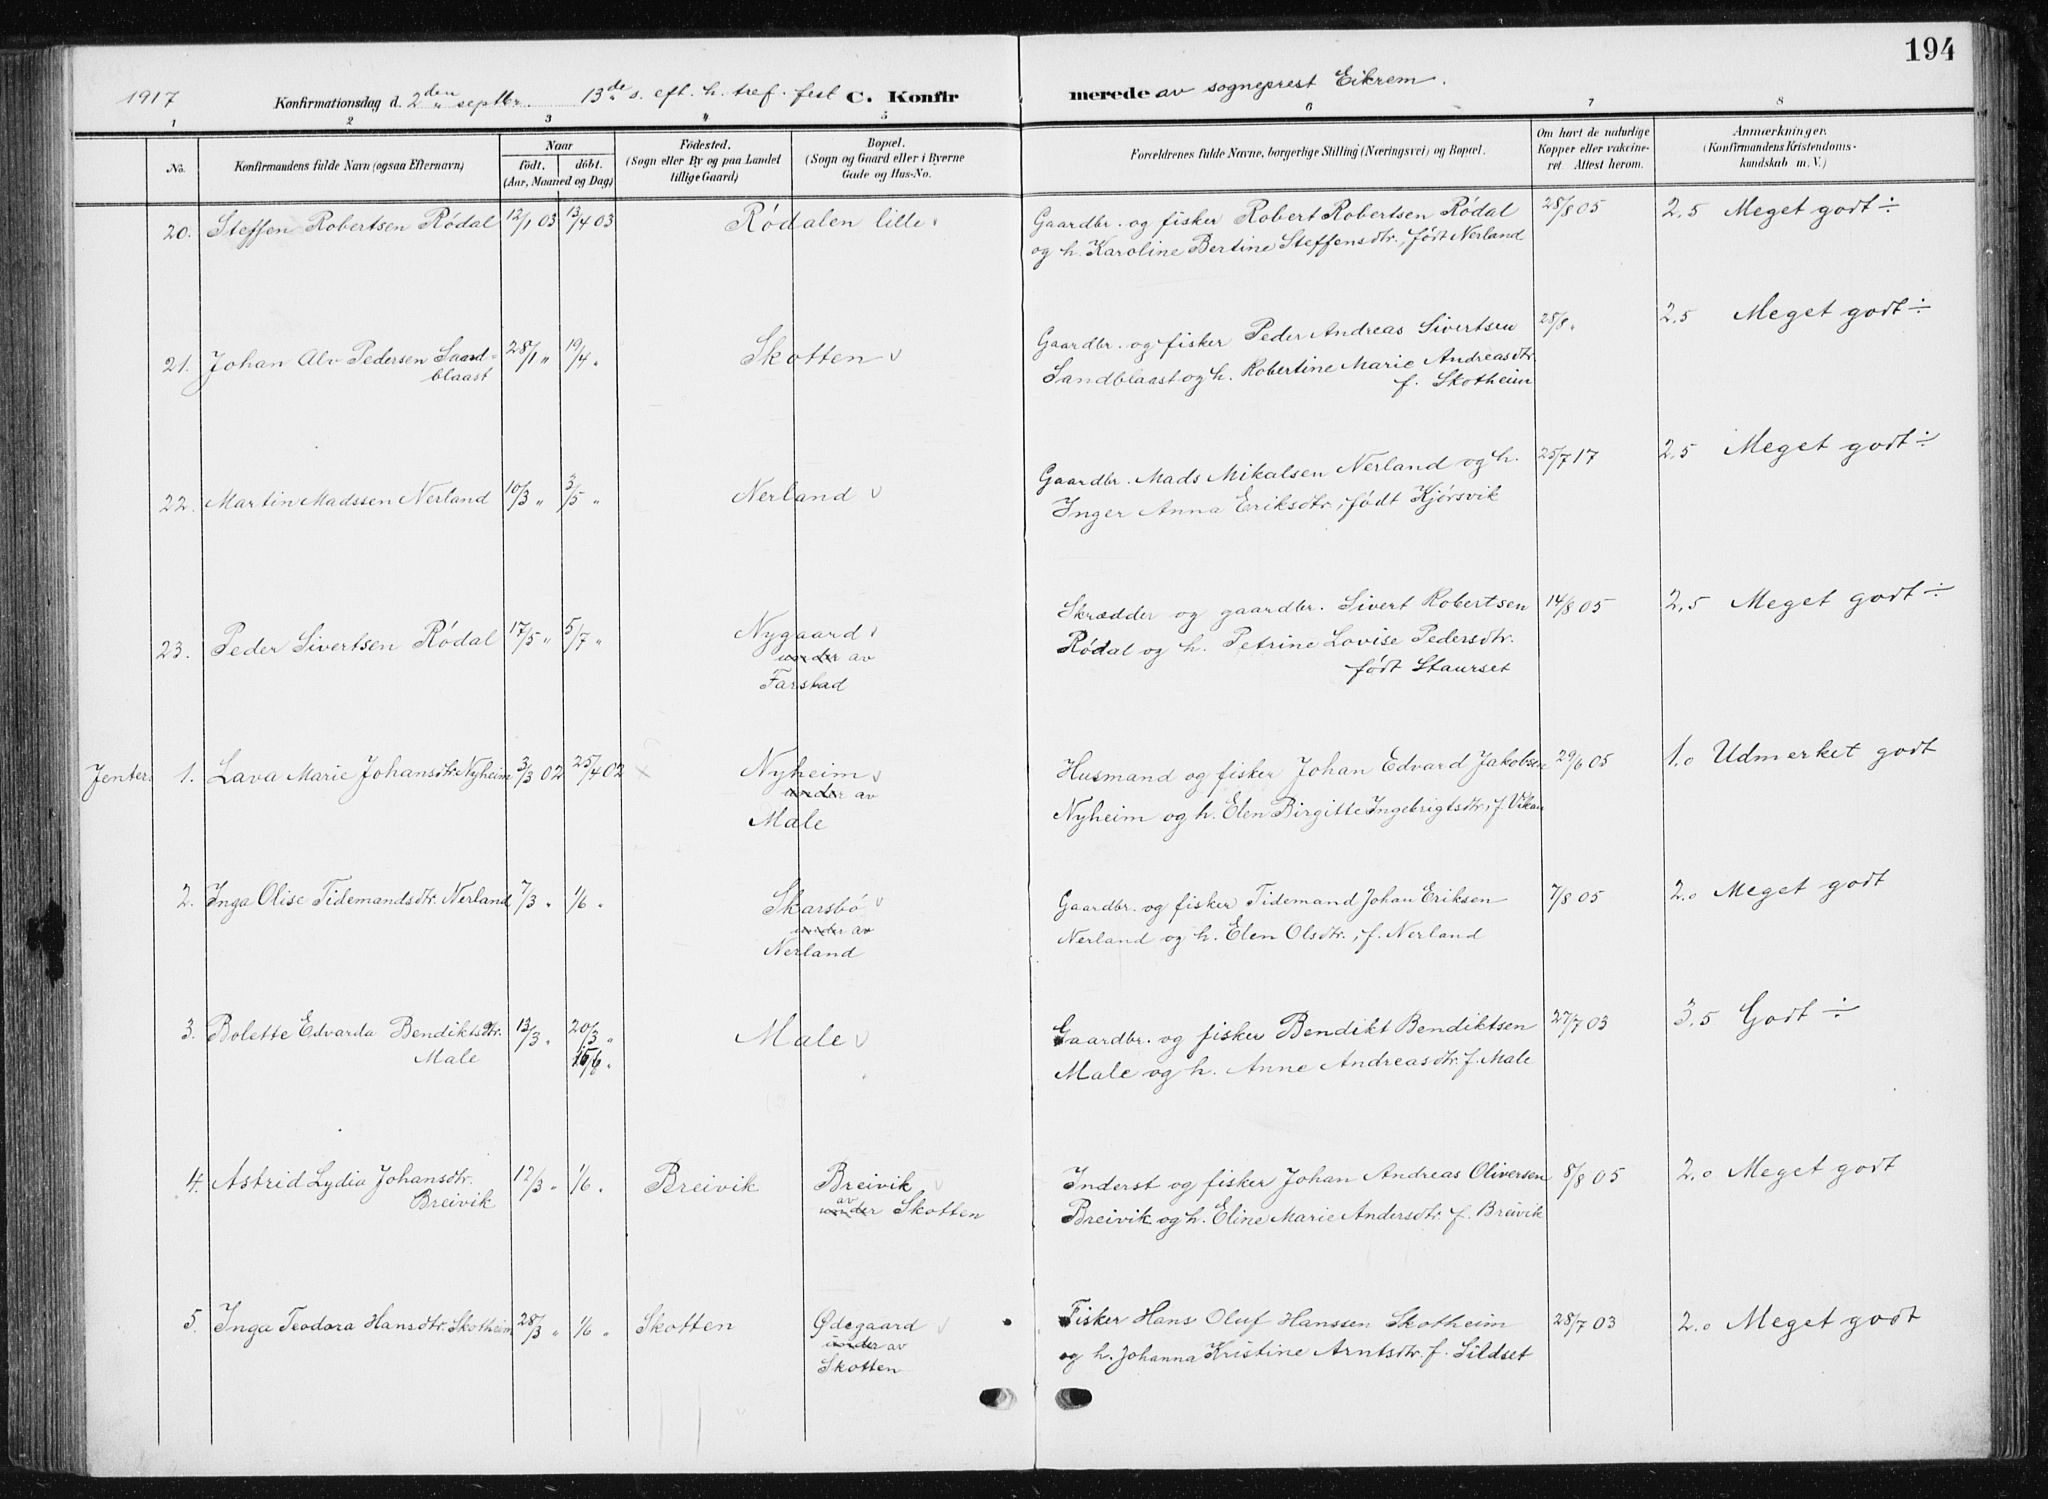 194
1917 Konfirmationsdag d. 2den septbr. 13de s. eft. h. tref. fest C. Konfir merede av sogneprest Eikrem.
1 2 3 4 5 6 7 8
No. Konfirmandens fulde Navn (ogsaa Efternavn) Naar født. døbt. (Aar, Maaned og Dag) Fødested. (Sogn eller By og paa Landet tillige Gaard) Bopæl. (Sogn og Gaard eller i Byerne Gade og Hus-No. Forældrenes fulde Navne, borgerlige Stilling (Næringsvei) og Bopæl. Om havt de naturlige Kopper eller vakcineret. Attest herom. Anmærkninger. (Konfirmandens Kristendomskundskab m. V.)
20. Steffen Robertsen Rödal 12/1 03 13/4 03 Rödalen lille Gaardbr. og fisker Robert Robertsen Rödal 28/8 05 2.5 Meget godt ÷
og h. Karoline Bertine Steffensdtr., födt Nerland
21. Johan Alv Pedersen Sand= 28/1 " 19/4 " Skotten Gaardbr. og fisker Peder Andreas Sivertsen 28/8 " 2.5 Meget godt ÷
blaast Sandblaast og h. Robertine Marie Andreasdtr.
f. Skotheim
22. Martin Madssen Nerland 10/3 " 3/5 " Nerland Gaardbr. Mads Mikalsen Nerland og h. 25/7 17 2.5 Meget godt ÷
Inger Anna Eriksdtr., födt Kjörsvik
23. Peder Sivertsen Rödal 17/5 " 5/7 " Nygaard Skrædder og gaardbr. Sivert Robertsen 14/8 05 2.5 Meget godt ÷
under av Rödal og h. Petrine Lovise Pedersdtr.
Farstad födt Staurset
Jenter. 1. Lava Marie Johansdtr. Nyheim 3/3 02 25/4 02 Nyheim Husmand og fisker Johan Edvard Jakobsen 29/6 05 1.0 Udmerket godt
under av Nyheim og h. Elen Birgitte Ingebrigtsdtr., f. Vikan
Male
2. Inga Olise Tidemandsdtr. Nerland 7/3 " 1/6 " Skarsbö Gaardbr. og fisker Tidemand Johan Eriksen 7/8 05 2.0 Meget godt
under av Nerland og h. Elen Olsdtr., f. Nerland
Nerland
3. Bolette Edvarda Bendiktsdtr. 13/3 " 20/3 " Male Gaardbr. og fisker Bendikt Bendiktsen 27/7 03 3.5 Godt ÷
Male 15/6 " Male og h. Anne Andreasdtr. f. Male
4. Astrid Lydia Johansdtr. 12/3 " 1/6 " Breivik Breivik Inderst og fisker Johan Andreas Oliversen 8/8 05 2.0 Meget godt
Breivik under av Skotten Breivik og h. Eline Marie Andersdtr. f. Breivik
5. Inga Teodora Hansdtr. Skotheim 28/3 " 1/6 " Skotten Ødegaard Fisker Hans Oluf Hanssen Skotheim 28/7 03 2.0 Meget godt
under av og h. Johanna Kristine Arntsdtr. f. Sildset
Skotten